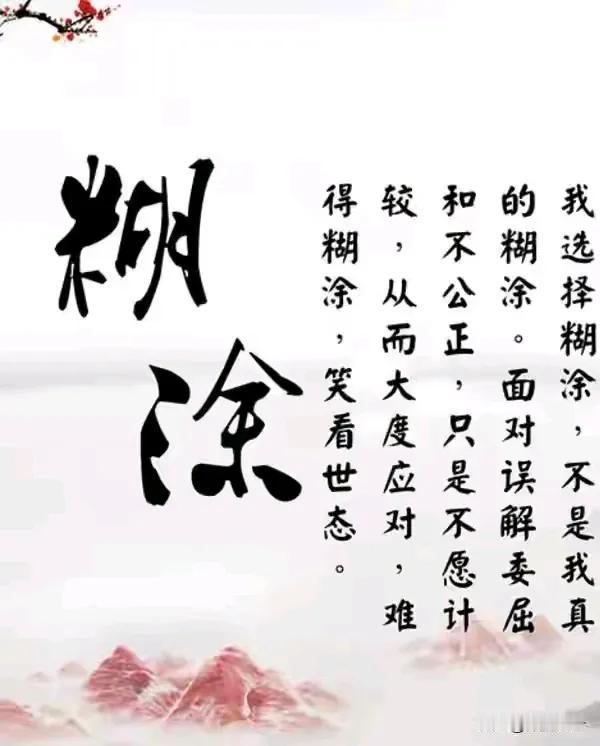 糊涂
我选择糊涂，不是我真
的糊涂。面对误解委屈
和不公正，只是不愿计
较，从而大度应对，难
得糊涂，笑看世态。